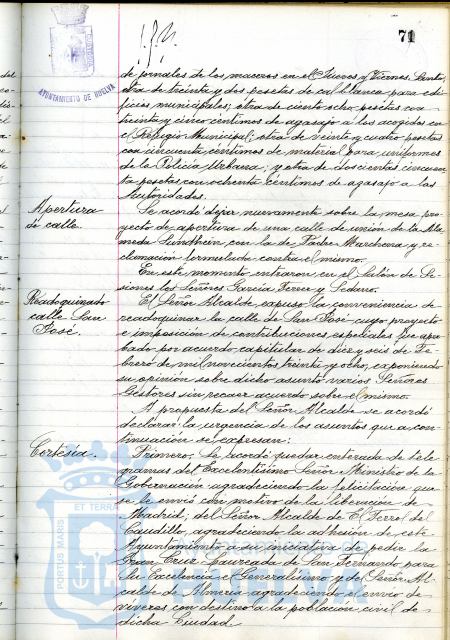 71
AYUNTAMIENTO DE HUELVA
de jornales de los maceros en el Jueves y Viernes Santo;
otra de treinta y dos pesetas de cal blanca para edi-
ficios municipales; otra de ciento seis pesetas con
treinta y cinco céntimos de agasajo a los acogidos en
el Refugio Municipal; otra de veinte y cuatro pesetas
con cincuenta céntimos de material para uniformes
de la Policía Urbana; y otra de doscientas cincuen-
ta pesetas con ochenta céntimos de agasajo a las
Autoridades.
Apertura
de calle.
Se acordó dejar nuevamente sobre la mesa pro-
yecto de apertura de una calle de unión de la Ala-
meda Sundheim con la de Padre Marchena y re-
clamación formulada contra el mismo.
En este momento entraron en el Salón de Se-
siones los Señores García Ferre y Sedano.
Readoquinado
calle San
José.
El Señor Alcalde expuso la conveniencia de
readoquinar la calle de San José cuyo proyecto
e imposición de contribuciones especiales fue apro-
bado por acuerdo capitular de diez y seis de Fe-
brero de mil novecientos treinta y ocho, exponiendo
su opinión sobre dicho asunto varios Señores
Gestores sin recaer acuerdo sobre el mismo.
A propuesta del Señor Alcalde se acordó
declarar la urgencia de los asuntos que a con-
tinuación se expresan:
Cortesía.
Primero. Se acordó quedar enterada de tele-
gramas del Excelentísimo Señor Ministro de la
Gobernación agradeciendo la felicitación que
se le envió con motivo de la liberación de
Madrid; del Señor Alcalde de El Ferrol del
Caudillo, agradeciendo la adhesión de este
Ayuntamiento a su iniciativa de pedir la
Gran Cruz Laureada de San Fernando para
Su Excelencia el Generalísimo y del Señor Al-
calde de Almería agradeciendo el envío de
víveres con destino a la población civil de
dicha Ciudad.
PORTUS MARIS
ET TERRA